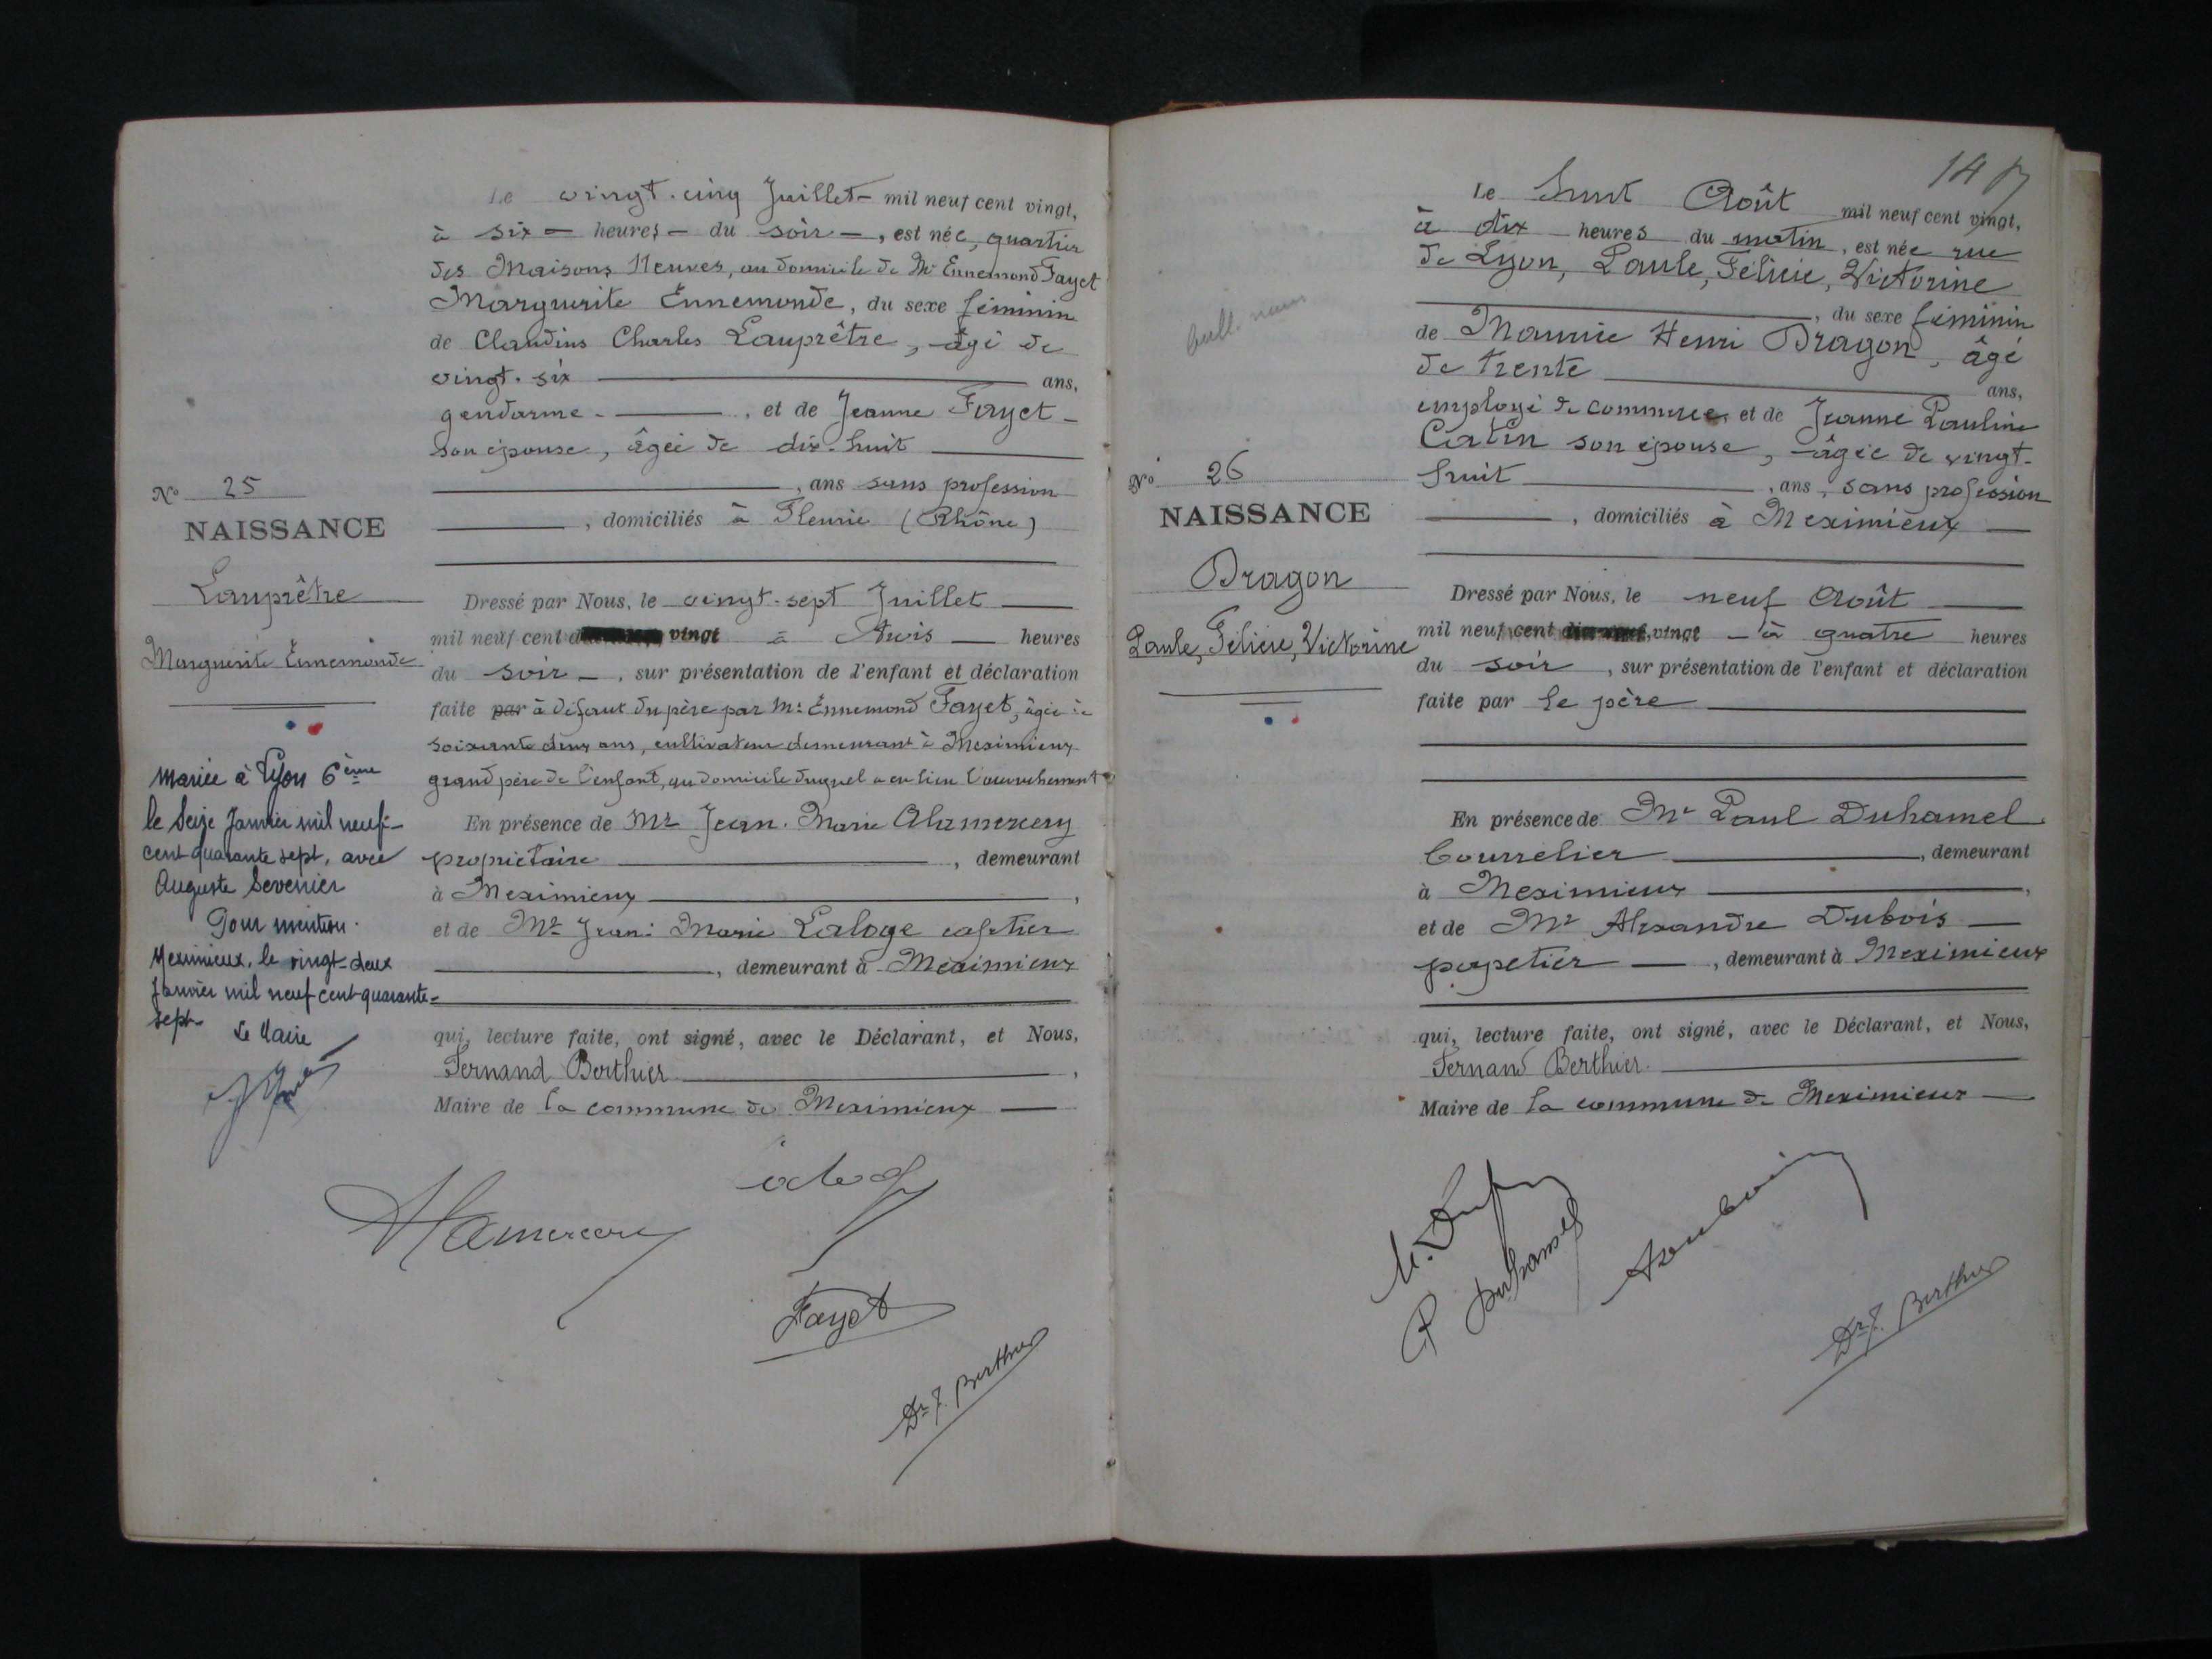 Le vingt-cinq Juillet mil neuf cent vingt,
à six heures du soir, est née, quartier
des Maisons Neuves, au domicile de Mr Ennemond Fayet
Marguerite Ennemonde, du sexe féminin
de Claudius Charles Lauprêtre, âgé de
vingt-six ans,
gendarme, et de Jeanne Fayet
son épouse, âgée de dix-huit
, ans sans profession
, domiciliés à Fleurie (Rhône)
No 25
NAISSANCE
Lauprêtre
Marguerite Ennemonde
Dressé par Nous, le vingt-sept Juillet
mil neuf cent vingt à trois heures
du soir, sur présentation de l'enfant et déclaration
faite par à défaut du père par Mr Ennemond Fayet, âgée de
soixante deux ans, cultivateur demeurant à Meximieux
grand père de l'enfant, au domicile duquel a eu lieu l'accouchement
mariée à Lyon 6ème
le Seize Janvier mil neuf-
cent quarante sept, avec
Auguste Sevenier
Pour mention.
Meximieux, le vingt-deux
Janvier mil neuf cent quarante-
sept
Le Maire
En présence de Mr Jean-Marie Alamercery
propriétaire, demeurant
à Meximieux,
et de Mr Jean-Marie Laloge cafetier
, demeurant à Meximieux
qui, lecture faite, ont signé, avec le Déclarant, et Nous,
Fernand Berthier,
Maire de la commune de Meximieux
Alamercery
Fayet
Dr F. Berthier
Le huit Août mil neuf cent vingt,
à dix heures du matin, est née rue
de Lyon, Paule, Félicie, Victorine
, du sexe féminin
de Maurice Henri Dragon, âgé
de trente ans,
employé de commerce, et de Jeanne Pauline
Catin son épouse, âgée de vingt-
huit, ans, sans profession
, domiciliés à Meximieux
No 26
NAISSANCE
Dragon
Paule, Félicie, Victorine
Dressé par Nous, le neuf Août
mil neuf cent vingt à quatre heures
du soir, sur présentation de l'enfant et déclaration
faite par le père
En présence de Mr Paul Duhamel
bourrelier, demeurant
à Meximieux,
et de Mr Alexandre Dubois
papetier, demeurant à Meximieux
qui, lecture faite, ont signé, avec le Déclarant, et Nous,
Fernand Berthier
Maire de la commune de Meximieux
P Duhamel
Dr F. Berthier